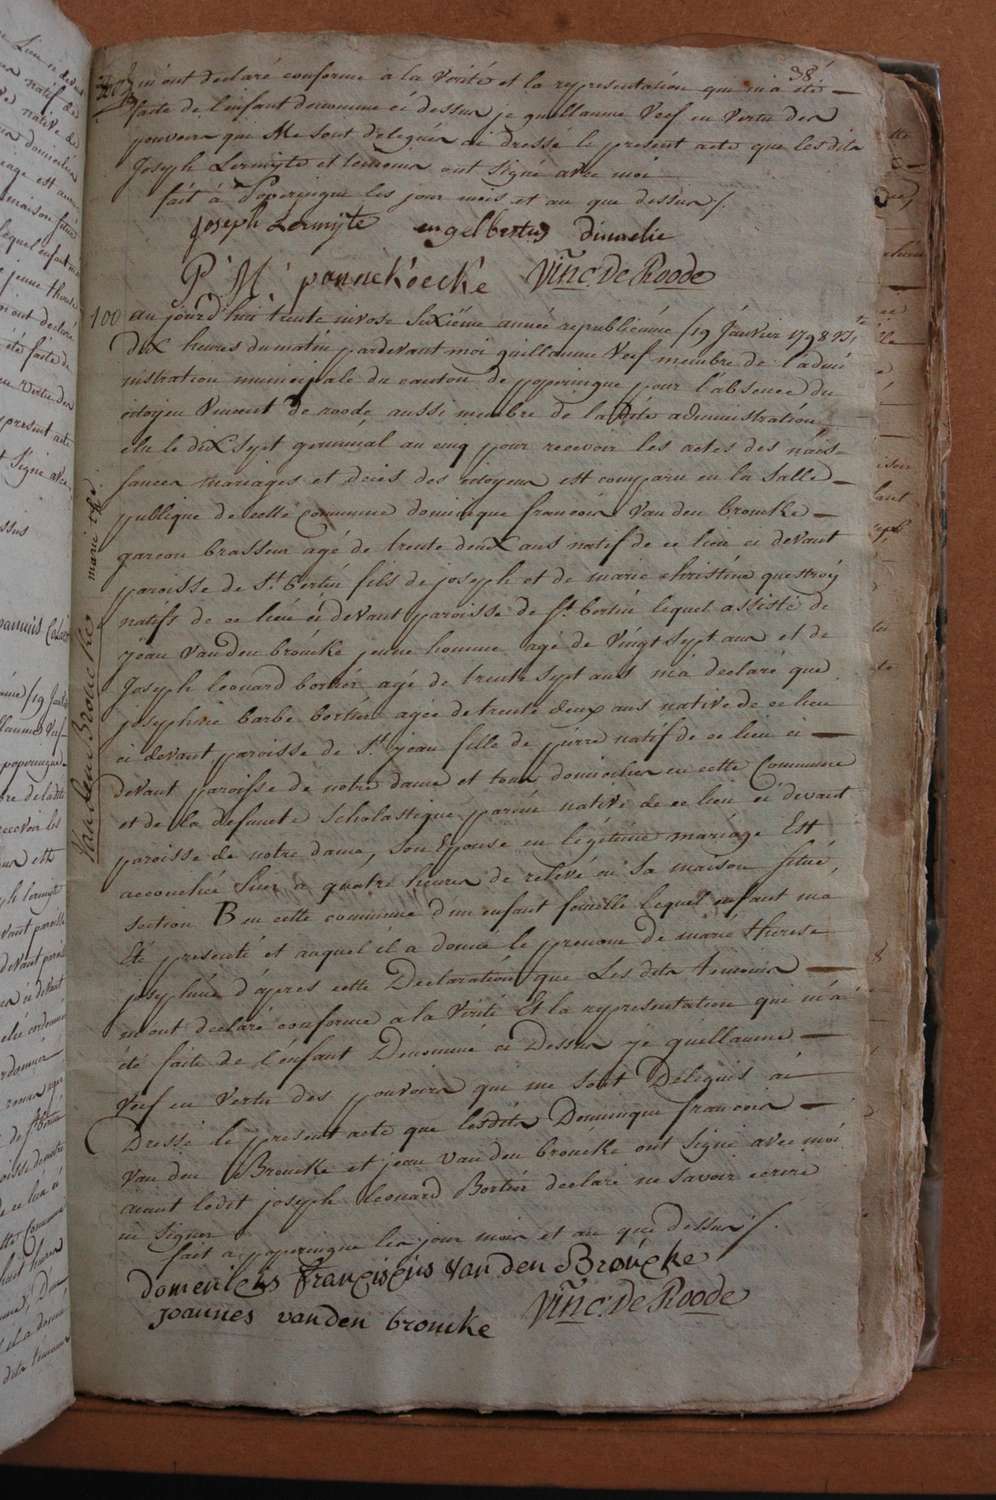 38
m'ont declaré conforme a la verité et la representation que m'a été
faite de l'enfant denommé ci dessus je guillaume Veef en vertu des
pouvoirs qui me sont delegués ai dressé le present acte que lesdits
Joseph Lermyte et temoins ont signé avec moi
fait à Poperingue les jour mois et an que dessus /.
joseph Lermyte engelbertus
P: M: pannekoecke Vinc: De Roode
100 au jourd'hui trente nivose sixieme année republicaine /19 janvier 1798 v st/
Dix heures du matin pardevant moi guillaume Veef membre de l'admi
nistration municipale du canton de poperingue pour l'absence du
citoyen Vincent de roode aussi membre de la dite administration
elu le dix sept germinal an cinq pour recevoir les actes des nais-
sances mariages et decès des citoyens est comparu en la Salle
publique de celle commune dominique francois Van den broucke
garcon brasseur agé de trente deux ans natif de ce lieu ci devant
paroisse de St. bertin fils de joseph et de marie christine questroy
natifs de ce lieu ci devant paroisse de St. bertin lequel assisté de
jean Van den broucke jeune homme agé de vingt sept ans et de
Joseph leonard bortier agé de trente sept ans m'a declaré que
josephine barbe bortier agée de trente deux ans native de ce lieu
ci devant paroisse de St. jean fille de pierre natif de ce lieu ci
devant paroisse de notre dame et tous domicilies en cette Commune
et de la defuncte Scholastique native de ce lieu ci devant
paroisse de notre dame, son Epouse en légitime mariage Est
accouchée hier a quatre heures de relévé en sa maison situé
section B en cette commune d'un enfant femelle lequel enfant m'a
été presenté et auquel il a donné le prenom de marie therese
josephine d'apres cette Declaration que Les dits temoins
m'ont declaré conforme a la Verité Et la representation qui m'a
été faite de l'enfant Denommé ci Dessus je guillaume
Veef en Vertu des pouvoirs qui me sont Delegués ai
Dressé le present acte que lesdits Dominique francois
Van den Broucke et jean Van den broucke ont signé avec moi
aiant ledit joseph Leonard Bortier declaré ne savoir ecrire
ni signer
fait a poperingue les jour mois et an que dessus /.
domenicus Franciscus van den Broucke
joannes van den broucke Vinc: De Roode
Van den Broucke marie thé: